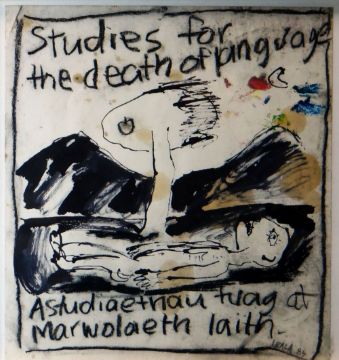 Studies for
the death of language
Astudiaethau tuag at
Marwolaeth Iaith.